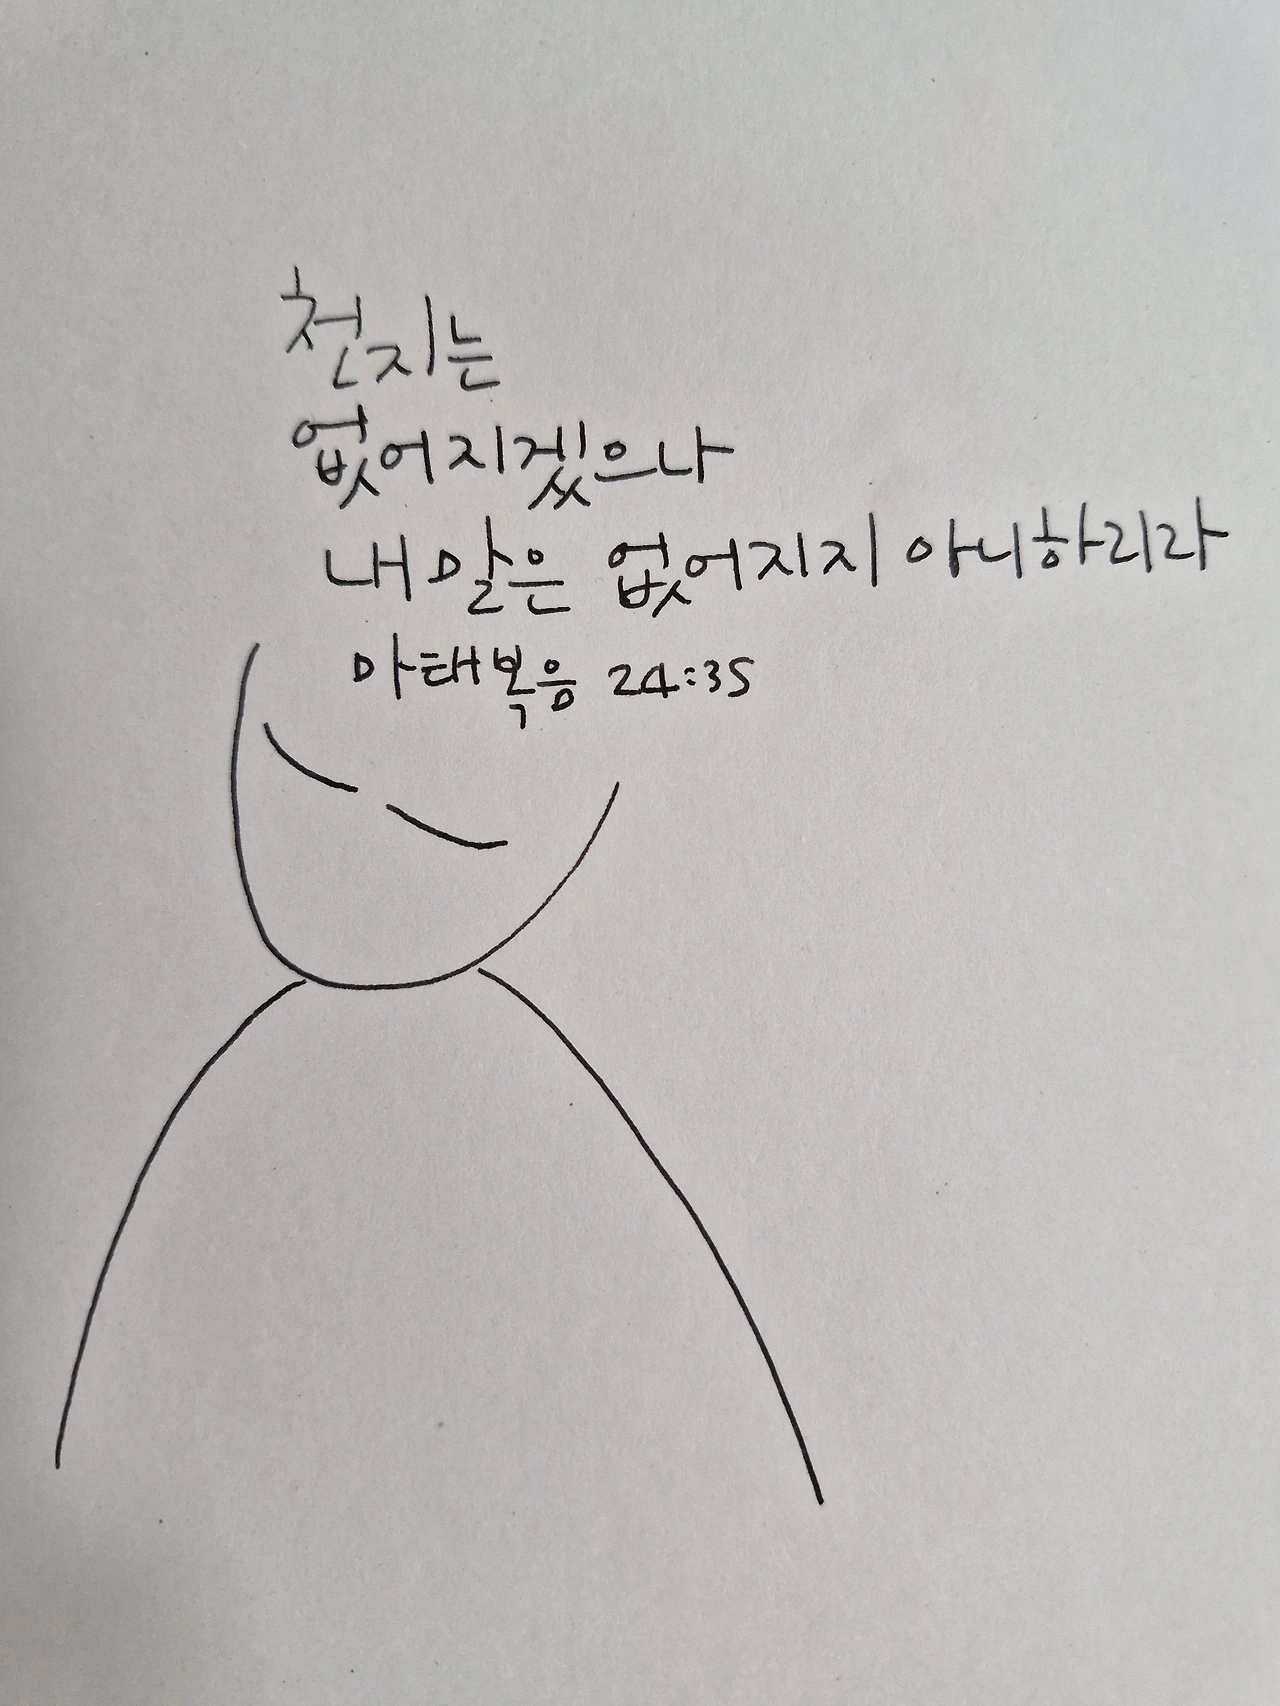 천지는
없어지겠으나
내 말은 없어지지 아니하리라
마태복음 24:35